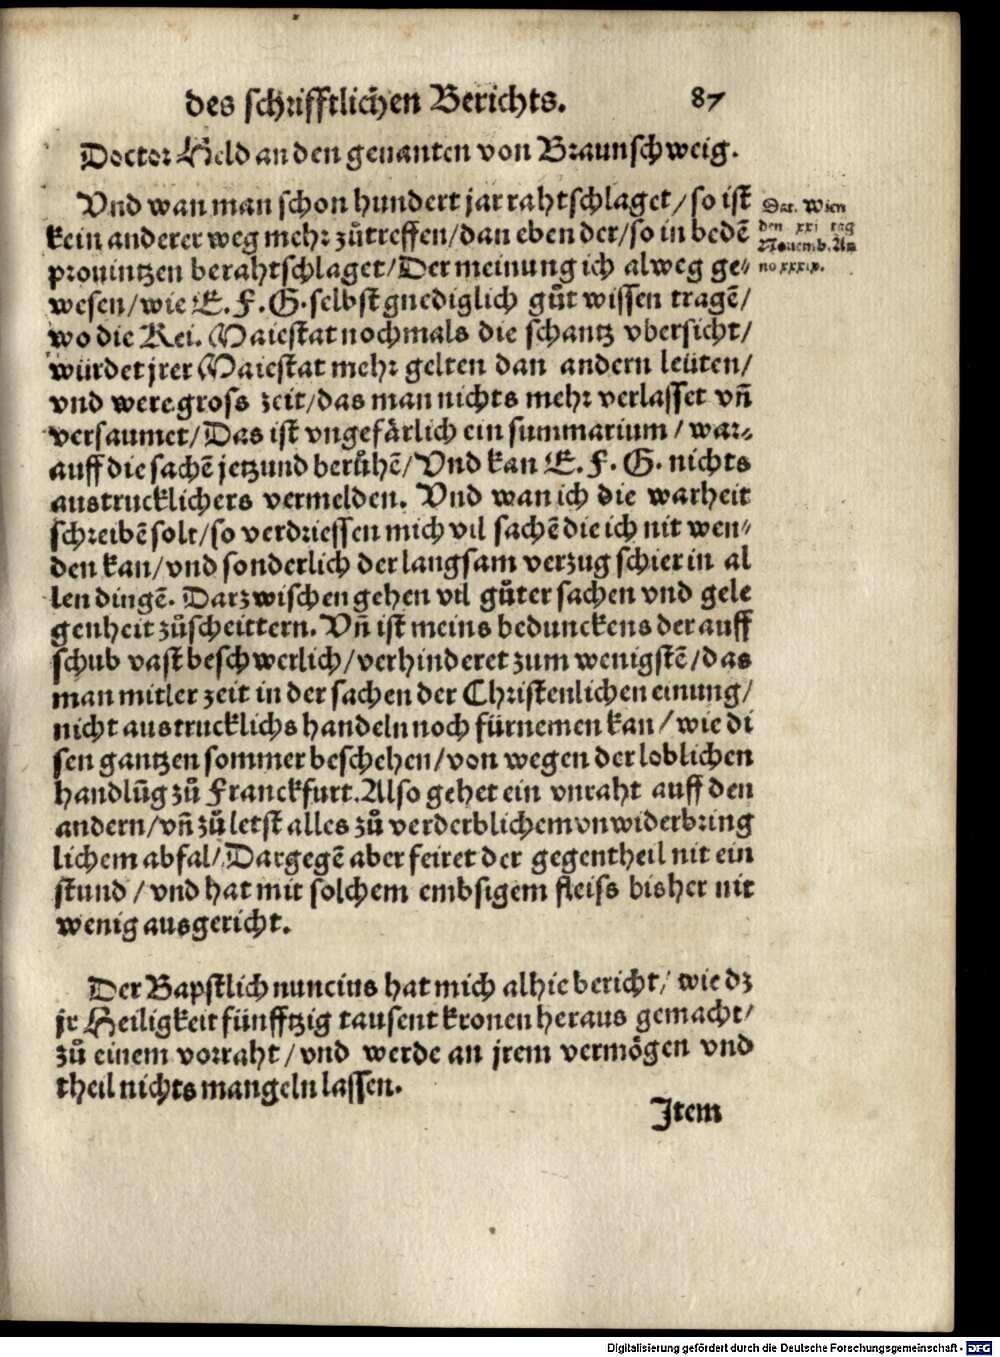 des schrifftlichen Berichts. 87
Doctor Held an den genanten von Braunschweig.
Vnd wan man schon hundert jar rahtschlaget/so ist
kein anderer weg mehr zůtreffen/dan eben der/so in bedē
prouintzen berahtschlaget/Der meinung ich alweg ge⸗
wesen/wie E. F. G. selbst gnediglich gůt wissen tragē/
wo die Kei. Maiestat nochmals die schantz vbersicht/
würdet jrer Maiestat mehr gelten dan andern leüten/
vnd were gross zeit/das man nichts mehr verlasset vñ
versaumet/Das ist vngefärlich ein summarium/war⸗
auff die sachē jetzund berůhē/Vnd kan E. F. G. nichts
austrucklichers vermelden. Vnd wan ich die warheit
schreibē solt/so verdriessen mich vil sachē die ich nit wen⸗
den kan/vnd sonderlich der langsam verzug schier in al
len dingē. Darzwischen gehen vil gůter sachen vnd gele
genheit zůscheittern. Vñ ist meins bedunckens der auff
schub vast beschwerlich/verhinderet zum wenigstē/das
man mitler zeit in der sachen der Christenlichen einung/
nicht austrucklichs handeln noch fürnemen kan/wie di
sen gantzen sommer beschehen/von wegen der loblichen
handlūg zů Franckfurt. Also gehet ein vnraht auff den
andern/vñ zů letst alles zů verderblichem vnwiderbring
lichem abfal/Dargegē aber feiret der gegentheil nit ein
stund/vnd hat mit solchem embsigem fleiss bisher nit
wenig ausgericht.
Der Bapstlich nuncius hat mich alhie bericht/wie dz
jr Heiligkeit fünfftzig tausent kronen heraus gemacht/
zů einem vorraht/vnd werde an jrem vermögen vnd
theil nichts mangeln lassen.
Item
Dat. Wien
den xxi tag
Nouemb. An
no xxxix.
Digitalisierung gefördert durch die Deutsche Forschungsgemeinschaft - DFG